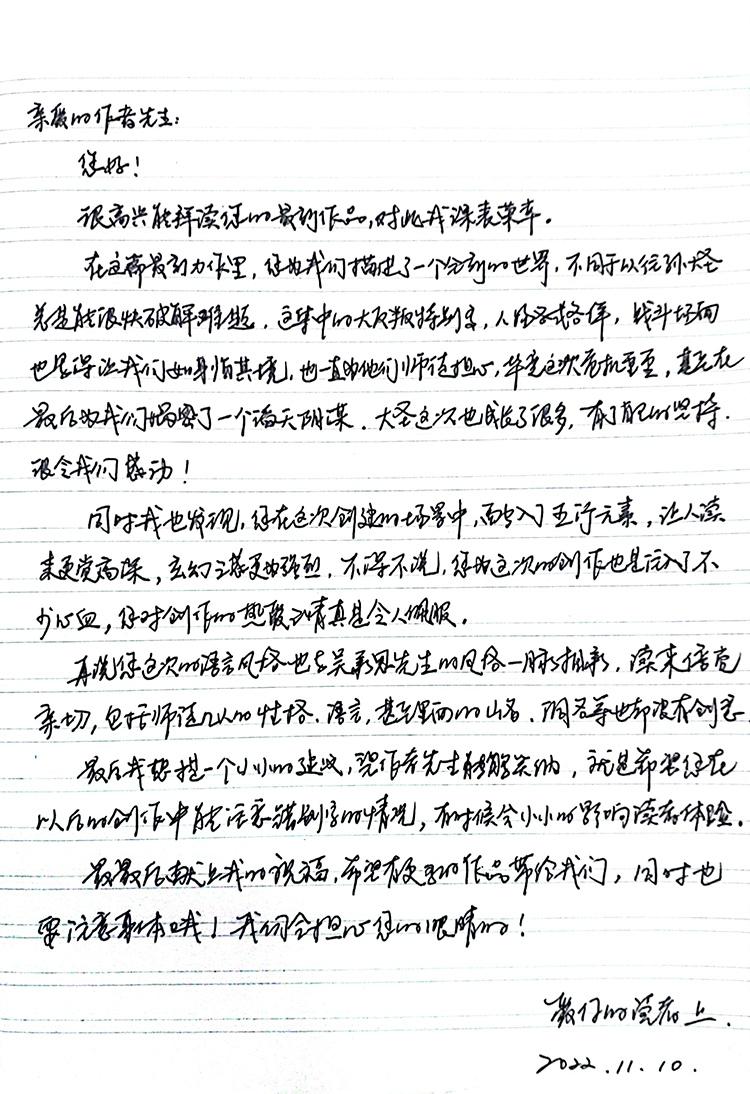 亲爱的作者先生:
您好!
很高兴能拜读您的最新作品,对此我深表荣幸。
在这部最新力作里,您为我们描述了一个全新的世界,不同于以往孙大圣
总是能很快破解难题,这其中的大反派特别多,人物各式各样,战斗场面
也显得让我们如身临其境,也一直为他们师徒担心,毕竟这次危机重重,甚至在
最后为我们揭密了一个滔天阴谋.大圣这次也成长了很多,有了自己的坚持.
很令我们感动!
同时我也发现,您在这次创建的场景中,融入了五行元素,让人读
来更觉高深,玄幻主莽更为强烈.不得不说,您为这次的创作也是注入了不
少心血,您对创作的热爱之情真是令人佩服。
再说您这次的语言风格也与吴承恩先生的风格一脉相承.读来倍觉
亲切,包括师徒几人的性格、语言,甚至里面的山名、洞名等也都很有创意.
最后我想提一个小小的建议,望作者先生能够采纳,就是希望您在
以后的创作中能注意错别字的情况,有时候会小小的影响读者体验.
最最后献上我的祝福,希望有更多的作品带给我们,同时也
要注意身体哦!我们会担心您的眼睛的!
敬仰的读者上.
2022.11.10.